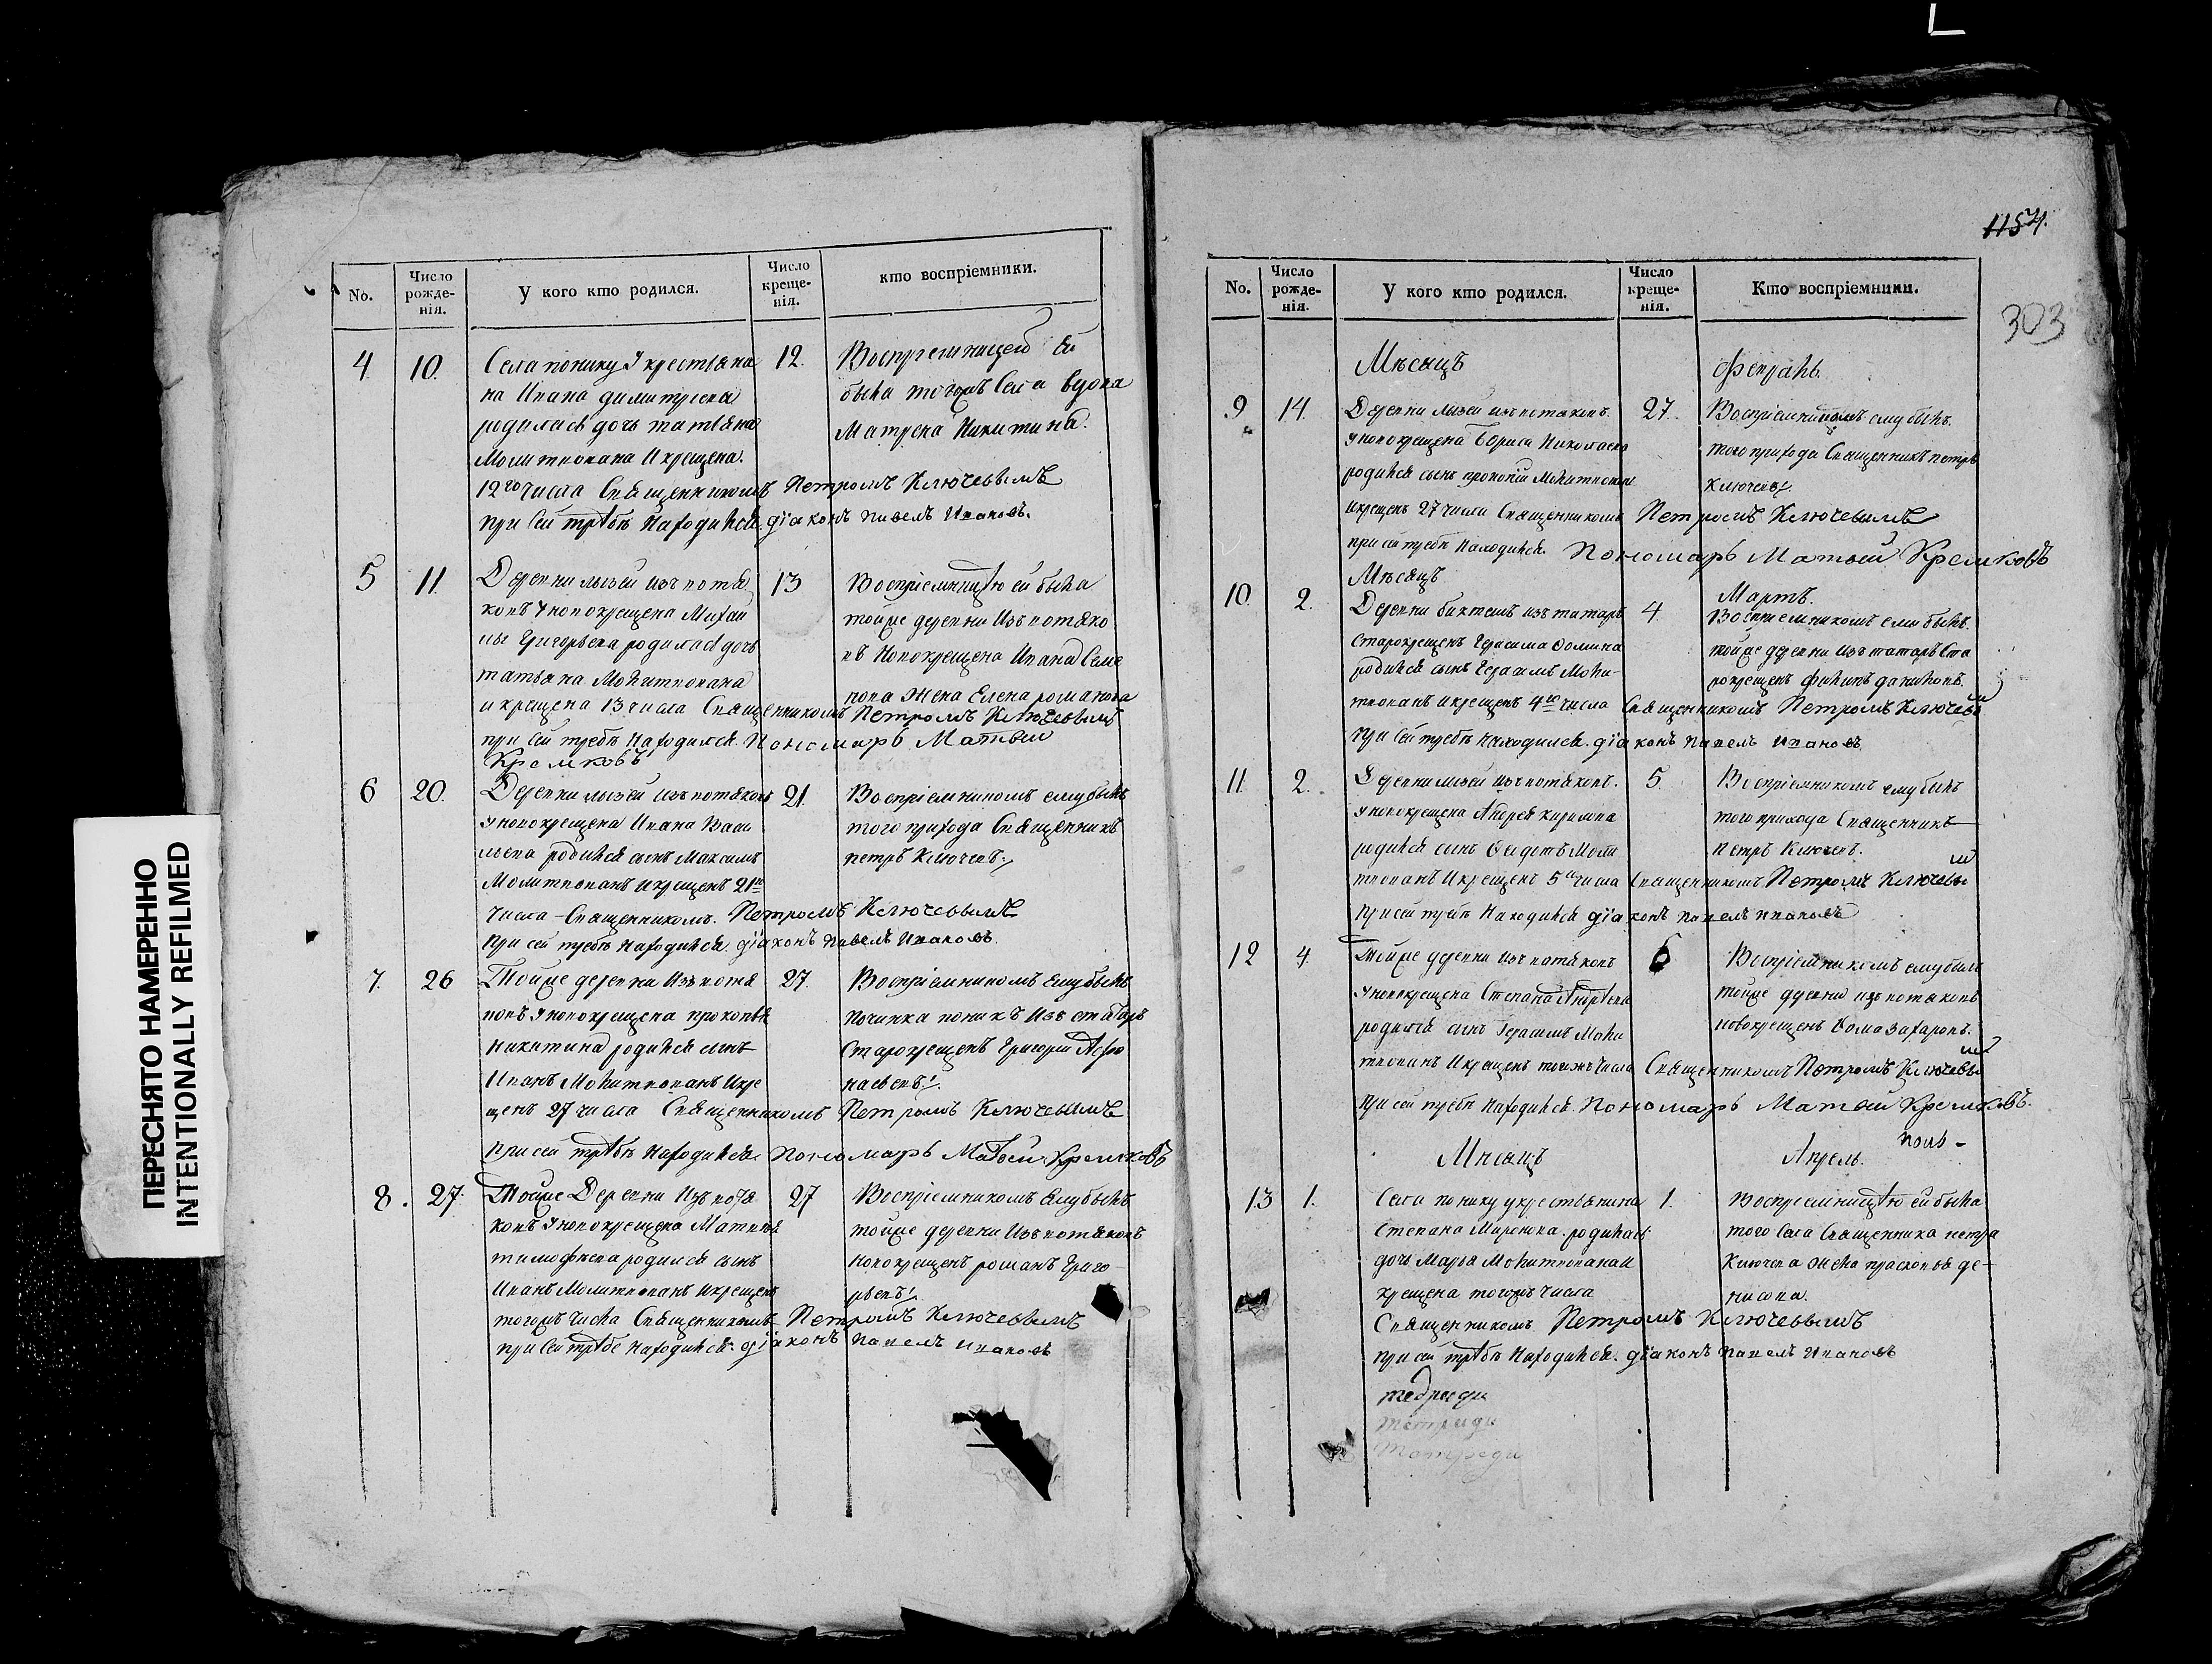 L
1154.
303
ПЕРЕСНЯТО НАМЕРЕННО
INTENTIONALLY REFILMED
No.
Число рожде-нія.
У кого кто родился.
Число креще-нія.
кто воспріемники.
4 10. Села понику У крестьяна 12. Воспріемницею Ей
на Ивана димитріева была тогожъ Села вдова
родилась дочь татьяна Матрена Никитина.
Молитвована И крещена.
12го числа Священникомъ Петромъ Ключевымъ
при сей требѣ Находился діаконъ Павелъ Ивановъ.
5 11. Деревни лызей изъ вотя 13 Воспріемницею ей была
ковъ У новокрещена Михаи тойже деревни Изъ вотяко
лы Григорьева родилась дочь въ Новокрещена Ивана Семе
татьяна Молитвована нова Жена Елена романова
и крещена 13 числа Священникомъ Петромъ Ключевымъ
при Сей требѣ Находился. Пономарь Матвей
Кремковъ
6 20. Деревни лызей изъ вотяковъ 21. Воспріемникомъ ему былъ
У новокрещена Ивана Васи того прихода Священникъ
льева родился сынъ Максимъ петръ Ключевъ.
Молитвованъ И крещенъ 21го
числа Священникомъ. Петромъ Ключевымъ
При сей требѣ находился діаконъ Павелъ Ивановъ.
7. 26 Тойже деревни Изъ вотя 27. Воспріемникомъ Ему былъ
ковъ У новокрещена прокопья починка поникъ Изъ татаръ
Никитина родился сынъ Старокрещенъ Григорій Афо
Иванъ Молитвованъ И кре насьевъ.
щенъ 27 числа Священникомъ Петромъ Ключевымъ
При сей требѣ Находился Пономарь Матвей Кремковъ
8. 27. Тойже Деревни Изъ вотя 27 Воспріемникомъ Ему былъ
ковъ У новокрещена Матвея тойже деревни Изъ вотяковъ
тимофѣева родился сынъ новокрещенъ романъ Григо
Иванъ Молитвованъ И крещенъ рьевъ.
тогожъ числа Священникомъ Петромъ Ключевымъ
при Сей требе Находился діаконъ Павелъ Ивановъ
No.
Число рожде-нія.
У кого кто родился.
Число креще-нія.
Кто воспріемники.
Мѣсяцъ Февраль.
9 14. Деревни лызей изъ вотяковъ. 27. Воспріемникомъ ему былъ.
У новокрещена Бориса Николаева того прихода Священникъ петръ
родился сынъ прокопій Молитвованъ Ключевъ.
И крещенъ 27 числа Священникомъ Петромъ Ключевымъ
при сей требѣ Находился. Пономарь Матвей Кремковъ
Мѣсяцъ Мартъ.
10. 2. Деревни биктешъ изъ татаръ 4. Воспріемникомъ ему былъ.
Старокрещенъ Герасима Фомина тойже деревни Изъ татаръ Ста
родился сынъ Герасимъ Моли- рокрещенъ филипъ даниловъ.
твованъ и крещенъ 4го числа Священникомъ Петромъ Ключевым
При Сей требѣ Находился. діаконъ Павелъ Ивановъ
11. 2. Деревни лызей изъ вотяковъ. 5. Воспріемникомъ ему былъ
У новокрещена Андрея кирилова того прихода Священникъ
родился сынъ Моли петръ Ключевъ.
твованъ И крещенъ 5го числа Священникомъ Петромъ Ключевым
При сей требѣ Находился діаконъ Павелъ Ивановъ
12 4. Тойже деревни изъ вотяковъ 6 Воспріемникомъ ему былъ
У новокрещена Степана Андреева тойже деревни изъ вотяковъ
родился сынъ Герасимъ Моли новокрещенъ Фома Захаровъ.
твованъ И крещенъ тогожъ числа Священникомъ Петромъ Ключевым
При сей требѣ Находился. Пономарь Матвей Кремковъ.
Мѣсяцъ Апрель.
13 1. Села понику у крестьянина 1. Воспріемницею ей была
Степана Миронова. родилась того Села Священника петра
дочь Марья Молитвована и Ключева Жена прасковья де-
крещена тогожъ числа нисова.
Священникомъ Петромъ Ключевымъ
При сей требѣ Находился. діаконъ Павелъ Ивановъ
тетради
тетради
Тетради